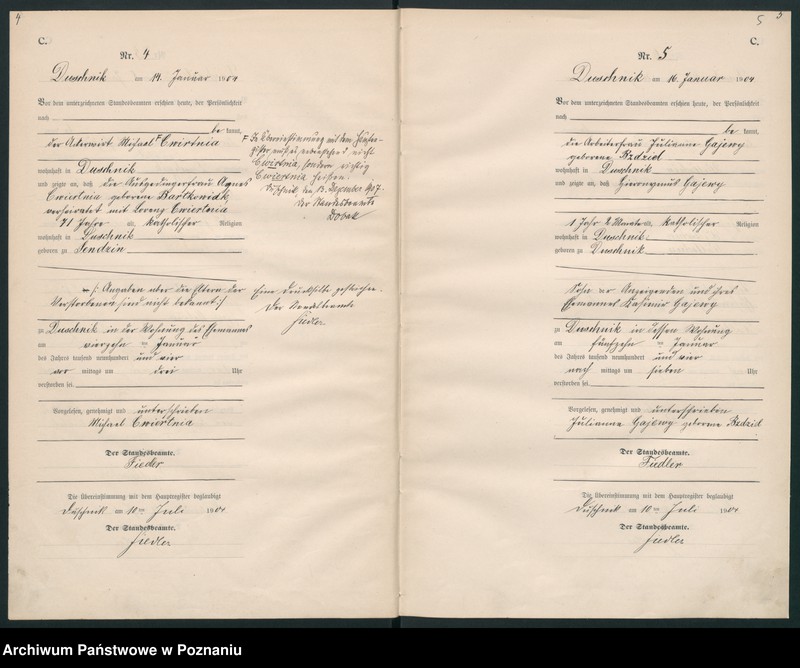 4
C.
Nr. 4
Duschnik am 14. Januar 1904
Vor dem unterzeichneten Standesbeamten erschien heute, der Persönlichkeit
nach
be kannt,
der Ackerwirt Michael F Cwirtnia
wohnhaft in Duschnik
und zeigte an, daß die Ausgedingerfrau Agnes
Cwiertnia geborene Bartkowiak
verheiratet mit Lorenz Cwiertnia
71 Jahre alt, katholischer Religion
wohnhaft in Duschnik
geboren zu Sendzin
/: Angaben über die Eltern der
Verstorbenen sind nicht bekannt :/
zu Duschnik in der Wohnung des Ehemanns
am vierzehn ten Januar
des Jahres tausend neunhundert und vier
vor mittags um drei Uhr
verstorben sei.
Vorgelesen, genehmigt und unterschrieben
Michael Cwiertnia
Der Standesbeamte.
Fiedler
Die Übereinstimmung mit dem Hauptregister beglaubigt
Duschnik am 10ten Juli 1904
Der Standesbeamte.
Fiedler
F In Übereinstimmung mit dem Haupt-
register muß es nicht
Cwirtnia, sondern richtig
Cwiertnia heißen.
Duschnik, den 13. Dezember 1907.
Der Standesbeamte
Dobak
Eine Druckzeile gestrichen.
Der Standesbeamte
Fiedler
5
5
C.
Nr. 5
Duschnik am 16. Januar 1904
Vor dem unterzeichneten Standesbeamten erschien heute, der Persönlichkeit
nach
be kannt,
die Arbeiterfrau Julianne Gajewy
geborene Bzdziel
wohnhaft in Duschnik
und zeigte an, daß Hieronymus Gajewy
1 Jahr Monate alt, katholischer Religion
wohnhaft in Duschnik
geboren zu Duschnik
Sohn der Anzeigenden und ihres
Ehemannes Kasimir Gajewy
zu Duschnik in dessen Wohnung
am fünfzehn ten Januar
des Jahres tausend neunhundert und vier
nach mittags um sieben Uhr
verstorben sei.
Vorgelesen, genehmigt und unterschrieben
Julianne Gajewy geborene Bzdziel
Der Standesbeamte.
Fiedler
Die Übereinstimmung mit dem Hauptregister beglaubigt
Duschnik am 10ten Juli 1904
Der Standesbeamte.
Fiedler
Archiwum Państwowe w Poznaniu